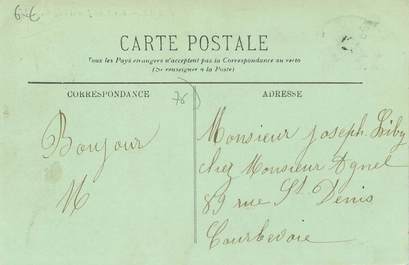 6€
CARTE POSTALE
Tous les Pays étrangers n'acceptent pas la Correspondance au verso
(Se renseigner à la Poste)
CORRESPONDANCE
ADRESSE
Bonjour
Monsieur Joseph
chez Monsieur Agnel
89 rue St Denis
Courbevoie